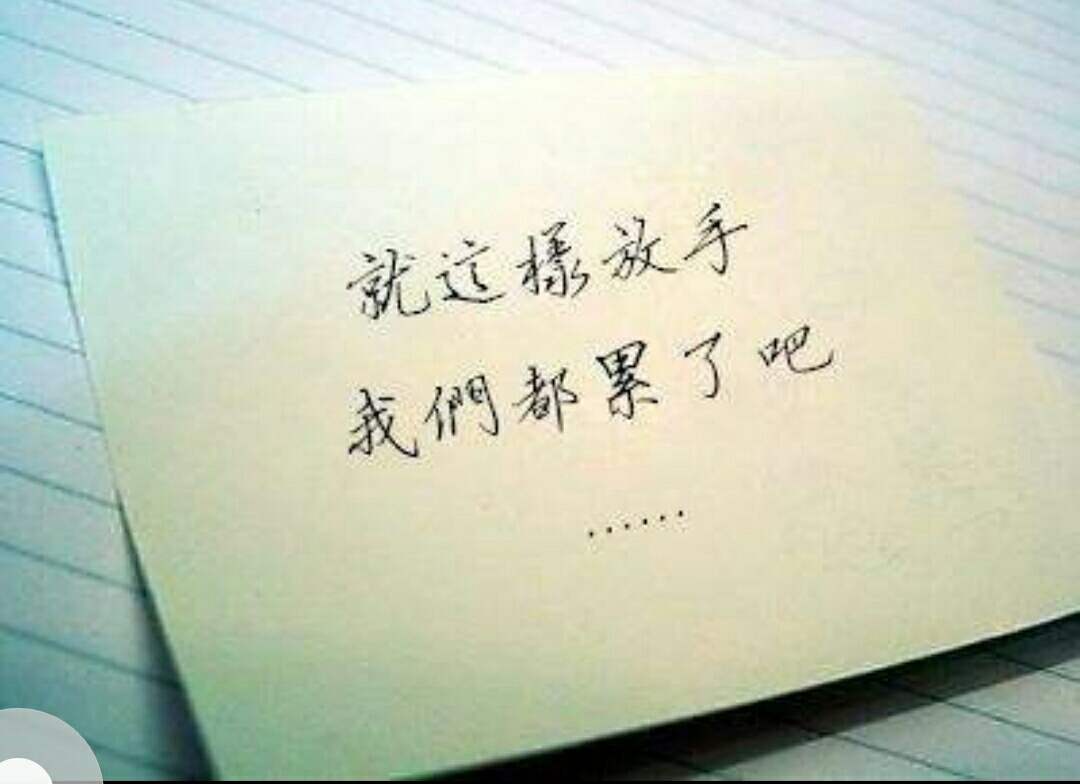 就這樣放手
我們都累了吧
......